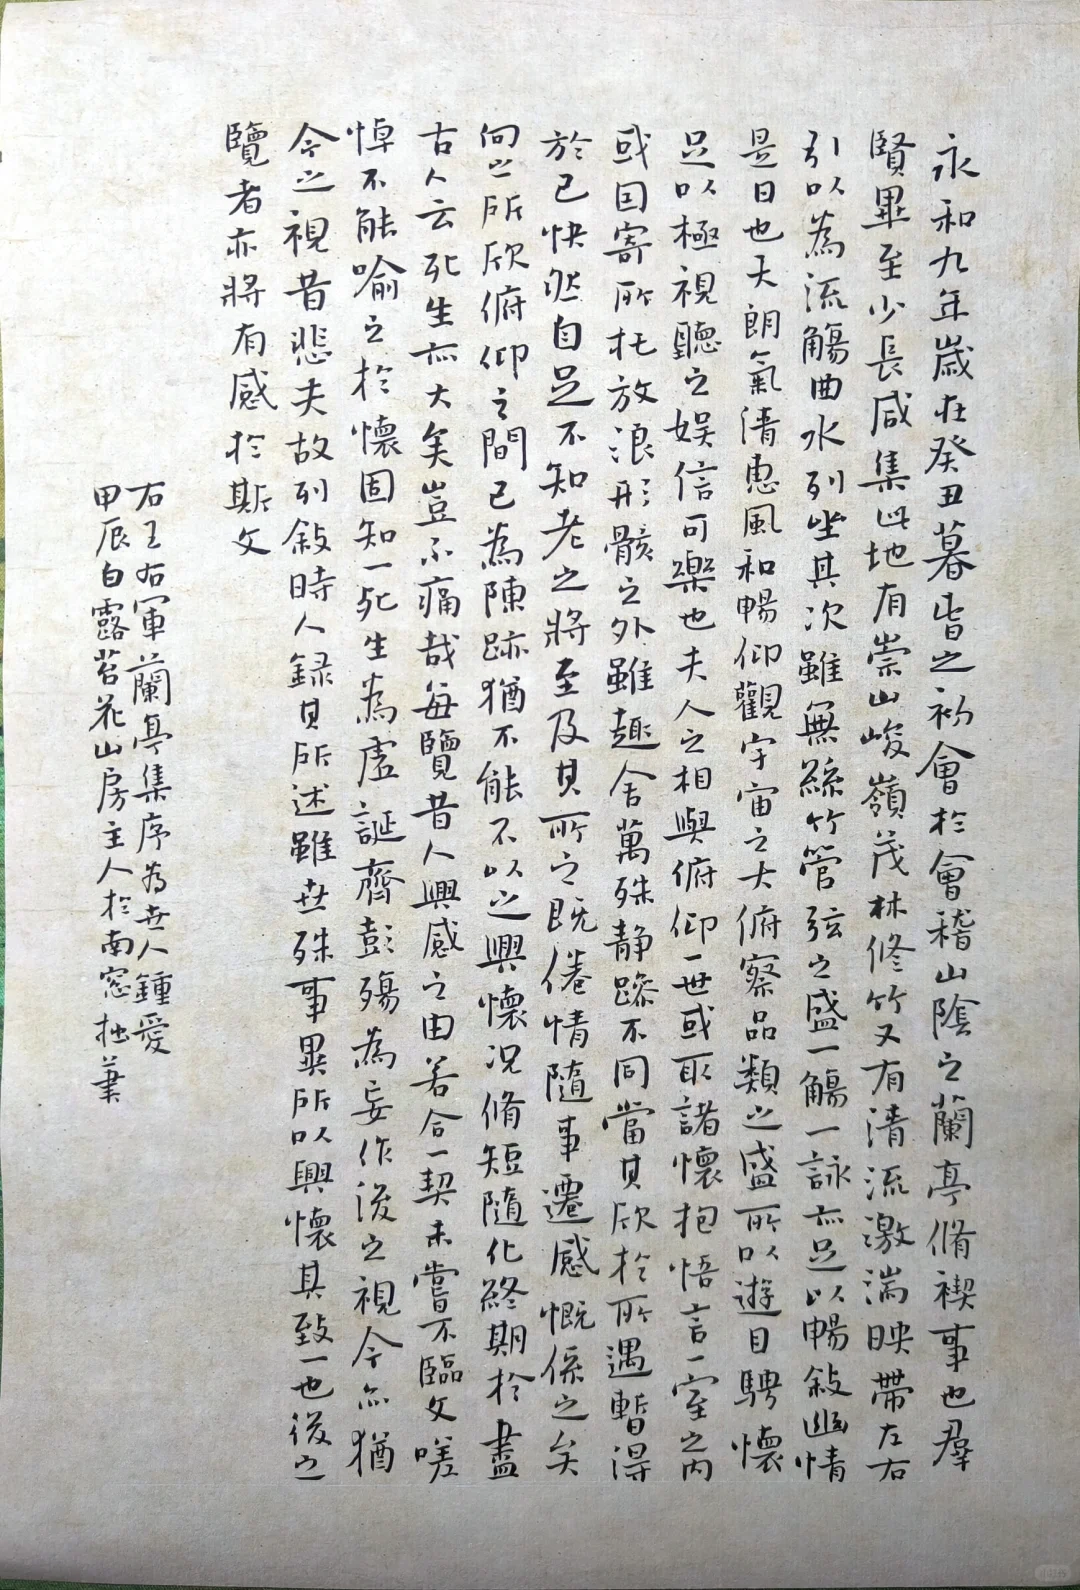 永和九年歲在癸丑暮春之初會於會稽山陰之蘭亭脩禊事也羣
賢畢至少長咸集此地有崇山峻嶺茂林修竹又有清流激湍映帶左右
引以為流觴曲水列坐其次雖無絲竹管弦之盛一觴一詠亦足以暢敘幽情
是日也天朗氣清惠風和暢仰觀宇宙之大俯察品類之盛所以遊目騁懷
足以極視聽之娛信可樂也夫人之相與俯仰一世或取諸懷抱悟言一室之內
或因寄所托放浪形骸之外雖趣舍萬殊静躁不同當其欣於所遇暫得
於己快然自足不知老之將至及其所之既倦情隨事遷感慨係之矣
向之所欣俯仰之間已為陳跡猶不能不以之興懷况脩短隨化終期於盡
古人云死生亦大矣豈不痛哉每覽昔人興感之由若合一契未嘗不臨文嗟
悼不能喻之於懷固知一死生為虛誕齊彭殤為妄作後之視今亦猶
今之視昔悲夫故列敘時人録其所述雖世殊事異所以興懷其致一也後之
覽者亦將有感於斯文
右王右軍蘭亭集序為世人鍾愛
甲辰白露苔花山房主人於南窓拙筆